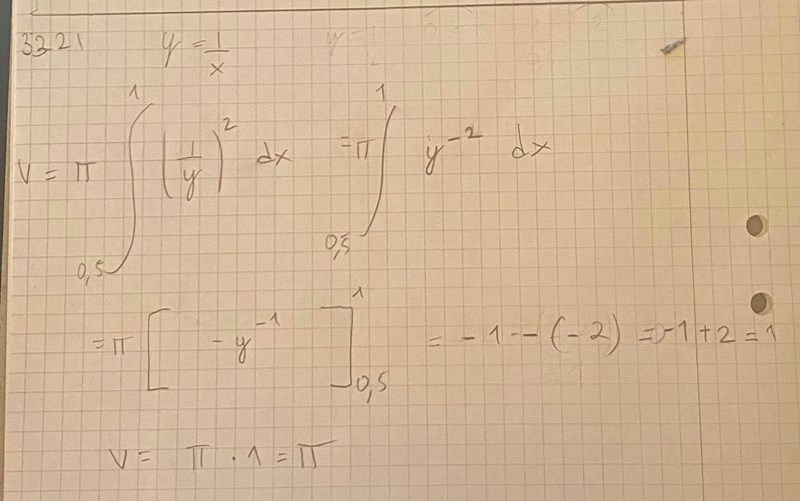 3321 y = 1/x
V = π ∫_{0,5}^{1} (1/y)^2 dx = π ∫_{0,5}^{1} y^{-2} dx
= π [ - y^{-1} ]_{0,5}^{1} = - 1 - - (- 2) = -1 + 2 = 1
V = π · 1 = π